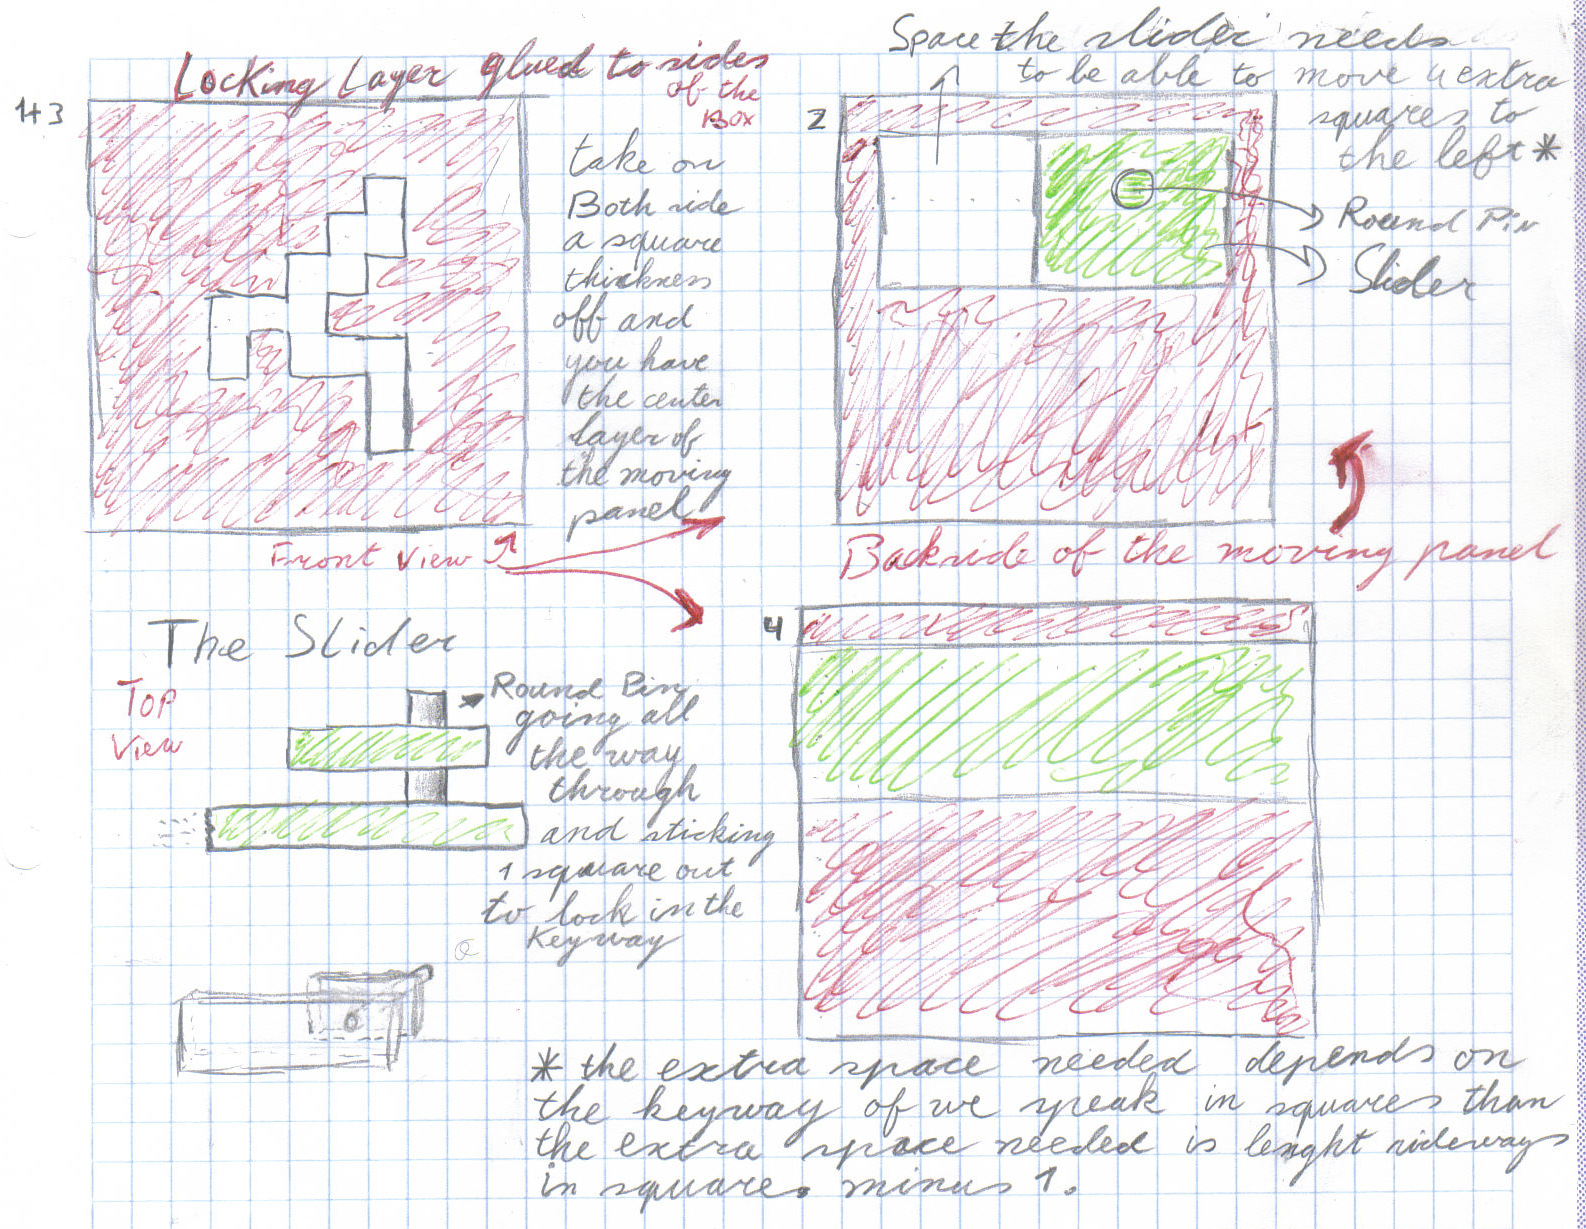 Locking Layer glued to sides
of the
Box
1+3
take on
Both side
a square
thickness
off and
you have
the center
layer of
the moving
panel
Front View
Space the slider needs
to be able to move 4 extra
squares to
the left *
2
Round Pin
Slider
Backside of the moving panel
The Slider
Top
View
Round Pin
going all
the way
through
and sticking
1 square out
to lock in the
Keyway
4
* the extra space needed depends on
the keyway of we speak in squares than
the extra space needed is lenght sideways
in squares minus 1.